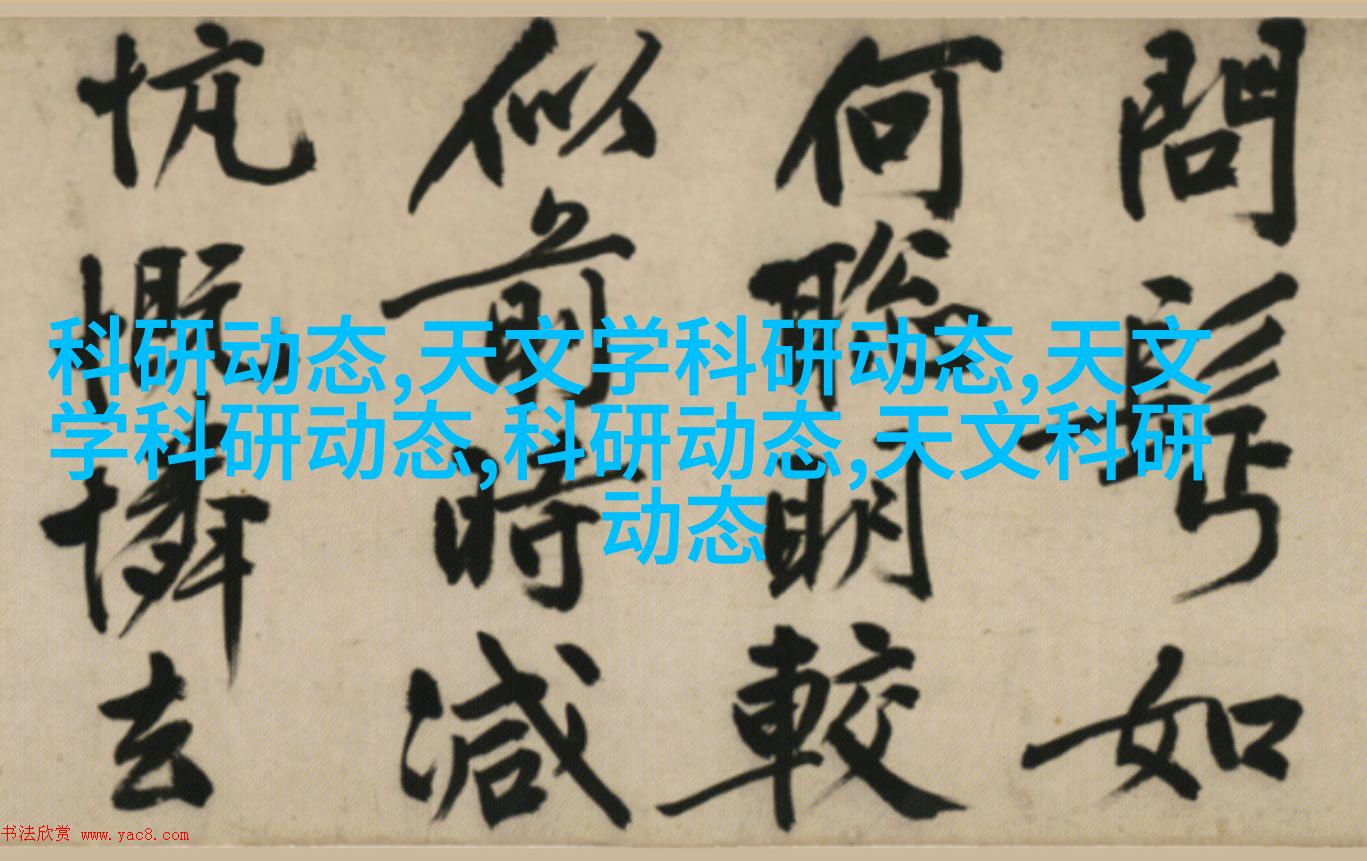 科研动态,天文学科研动态,天文
学科研动态,科研动态,天文科研
动态
問如
何聰明較
似前時減
忼慨憐去
书法欣赏 www.yac8.com